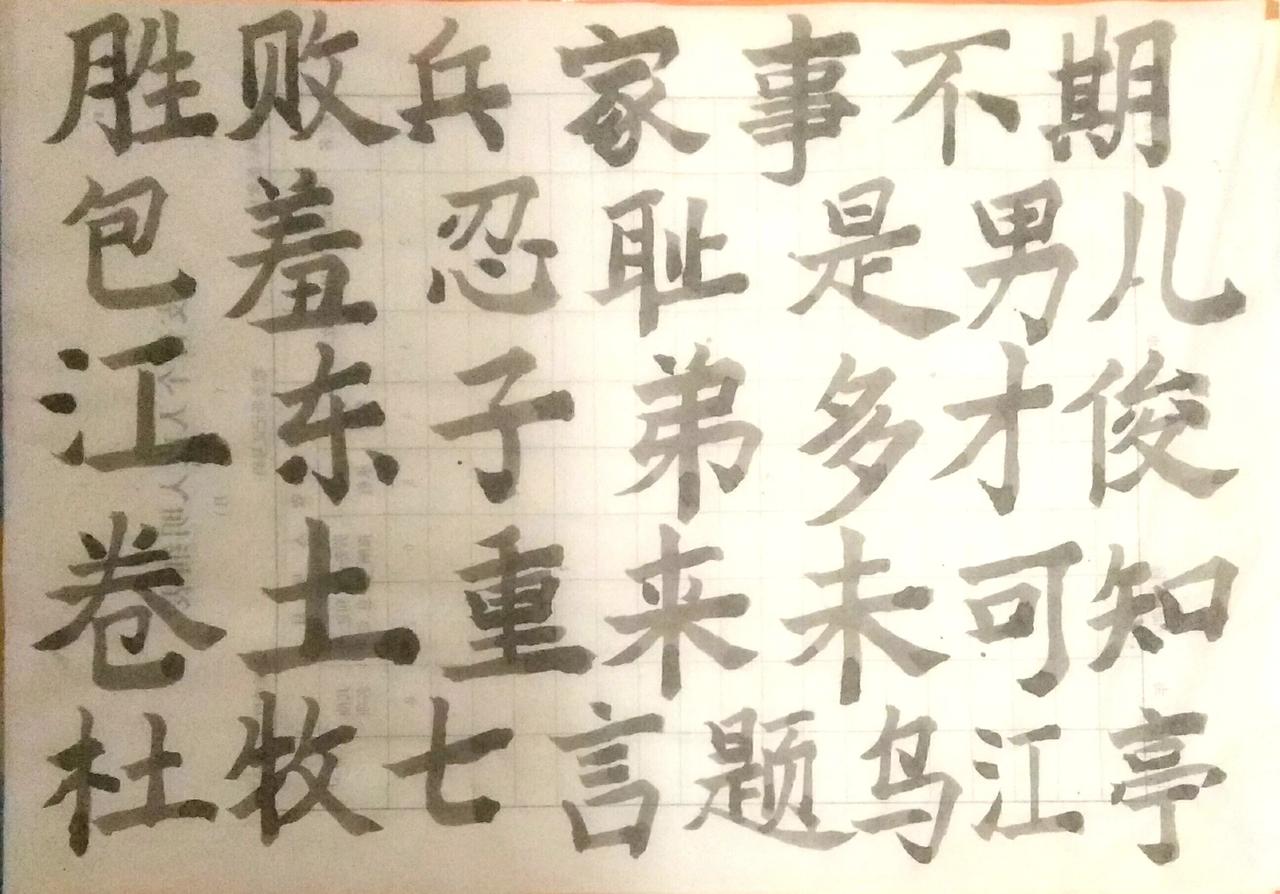 胜败兵家事不期
包羞忍耻是男儿
江东子弟多才俊
卷土重来未可知
杜牧七言题乌江亭